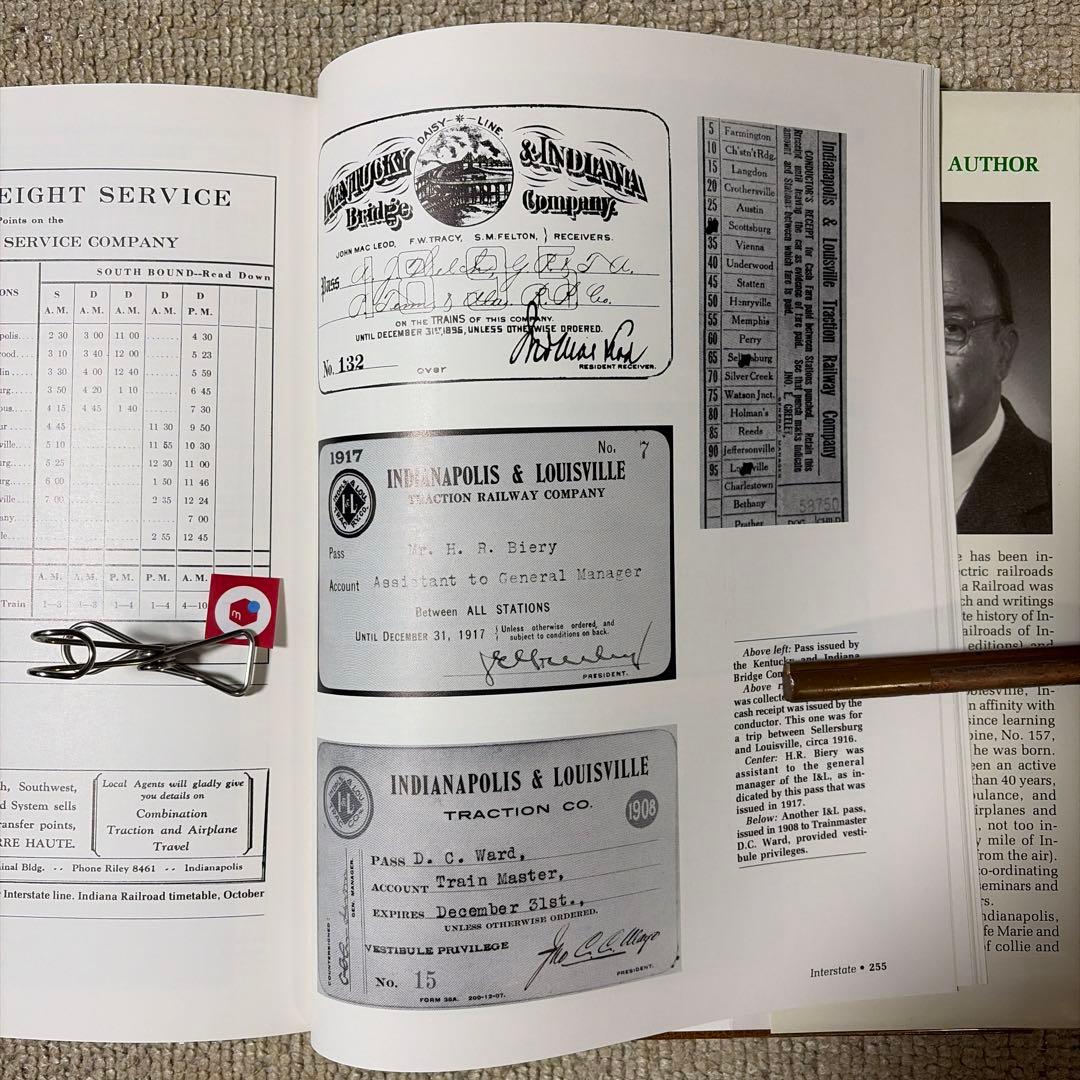 EIGHT SERVICE
Points on the
SERVICE COMPANY
SOUTH BOUND--Read Down
ONS
S D D D D
A. M. A. M. A. M. A. M. P. M.
polis.. 2 30 3 00 11 00 ....... 4 30
ood.... 3 10 3 40 12 00 ....... 5 23
lin.... 3 30 4 00 12 40 ....... 5 59
urg.... 3 50 4 20 1 10 ....... 6 45
ous.... 4 15 4 45 1 40 ....... 7 30
ur..... 4 45 11 30 9 50
ville.... 5 10 11 55 10 30
rg..... 5 25 12 30 11 00
rg..... 6 00 1 50 11 46
ville.... 7 00 2 35 12 24
any.... 7 00
le..... 2 55 12 45
A. M. A. M. P. M. P. M. A. M.
Train 1—3 1—3 1—4 1—4 4—10
m
h, Southwest,
d System sells
ransfer points,
RRE HAUTE.
Local Agents will gladly give
you details on
Combination
Traction and Airplane
Travel
inal Bldg. -- Phone Riley 8461 -- Indianapolis
Interstate line. Indiana Railroad timetable, October
DAISY LINE
KENTUCKY & INDIANA
Bridge Company.
JOHN MAC LEOD, F. W. TRACY, S. M. FELTON, } RECEIVERS.
Pass
ON THE TRAINS OF THIS COMPANY.
UNTIL DECEMBER 31ST, 1896, UNLESS OTHERWISE ORDERED.
Jno Mac Leod
No. 132 over
RESIDENT RECEIVER.
1917 No. 7
INDIANAPOLIS & LOUISVILLE
TRACTION RAILWAY COMPANY
I&L
Pass Mr. H. R. Biery
Account Assistant to General Manager
Between ALL STATIONS
UNTIL DECEMBER 31, 1917 { Unless otherwise ordered, and
subject to conditions on back.
PRESIDENT.
INDIANAPOLIS & LOUISVILLE
TRACTION CO.
1908
I&L
PASS D. C. Ward,
ACCOUNT Train Master,
EXPIRES December 31st.,
UNLESS OTHERWISE ORDERED.
VESTIBULE PRIVILEGE
COUNTERSIGNED:
GEN. MANAGER.
PRESIDENT.
No. 15
FORM 38A. 200-12-07.
5 Farmington
10 Ch'stn't Rdg.
15 Langdon
20 Crothersville
25 Austin
Scottsburg
35 Vienna
40 Underwood
45 Statten
50 Henryville
55 Memphis
60 Perry
65 Sellersburg
70 Silver Creek
75 Watson Jnct.
80 Holman's
85 Reeds
90 Jeffersonville
95 Louisville
Charlestown
Bethany
Prather
DOG CHILD
59750
Indianapolis & Louisville Traction Railway Company
CONDUCTOR'S RECEIPT for Cash Fare paid between Stations punched. Retain this
Receipt until leaving the car as evidence of Fare paid. See that punch marks indicate
amount and Stations between which fare is paid.
JNO. E. GREELEY,
GENERAL MANAGER
Above left: Pass issued by
the Kentucky and Indiana
Bridge Com
Above r
was collect
cash receipt was issued by the
conductor. This one was for
a trip between Sellersburg
and Louisville, circa 1916.
Center: H.R. Biery was
assistant to the general
manager of the I&L, as in-
dicated by this pass that was
issued in 1917.
Below: Another I&L pass,
issued in 1908 to Trainmaster
D.C. Ward, provided vesti-
bule privileges.
Interstate • 255
AUTHOR
e has been in-
ectric railroads
a Railroad was
ch and writings
te history of In-
ailroads of In-
editions) and
oblesville, In-
n affinity with
since learning
bine, No. 157,
he was born.
een an active
than 40 years,
bulance, and
irplanes and
, not too in-
y mile of In-
rom the air).
co-ordinating
seminars and
rs.
ndianapolis,
fe Marie and
of collie and